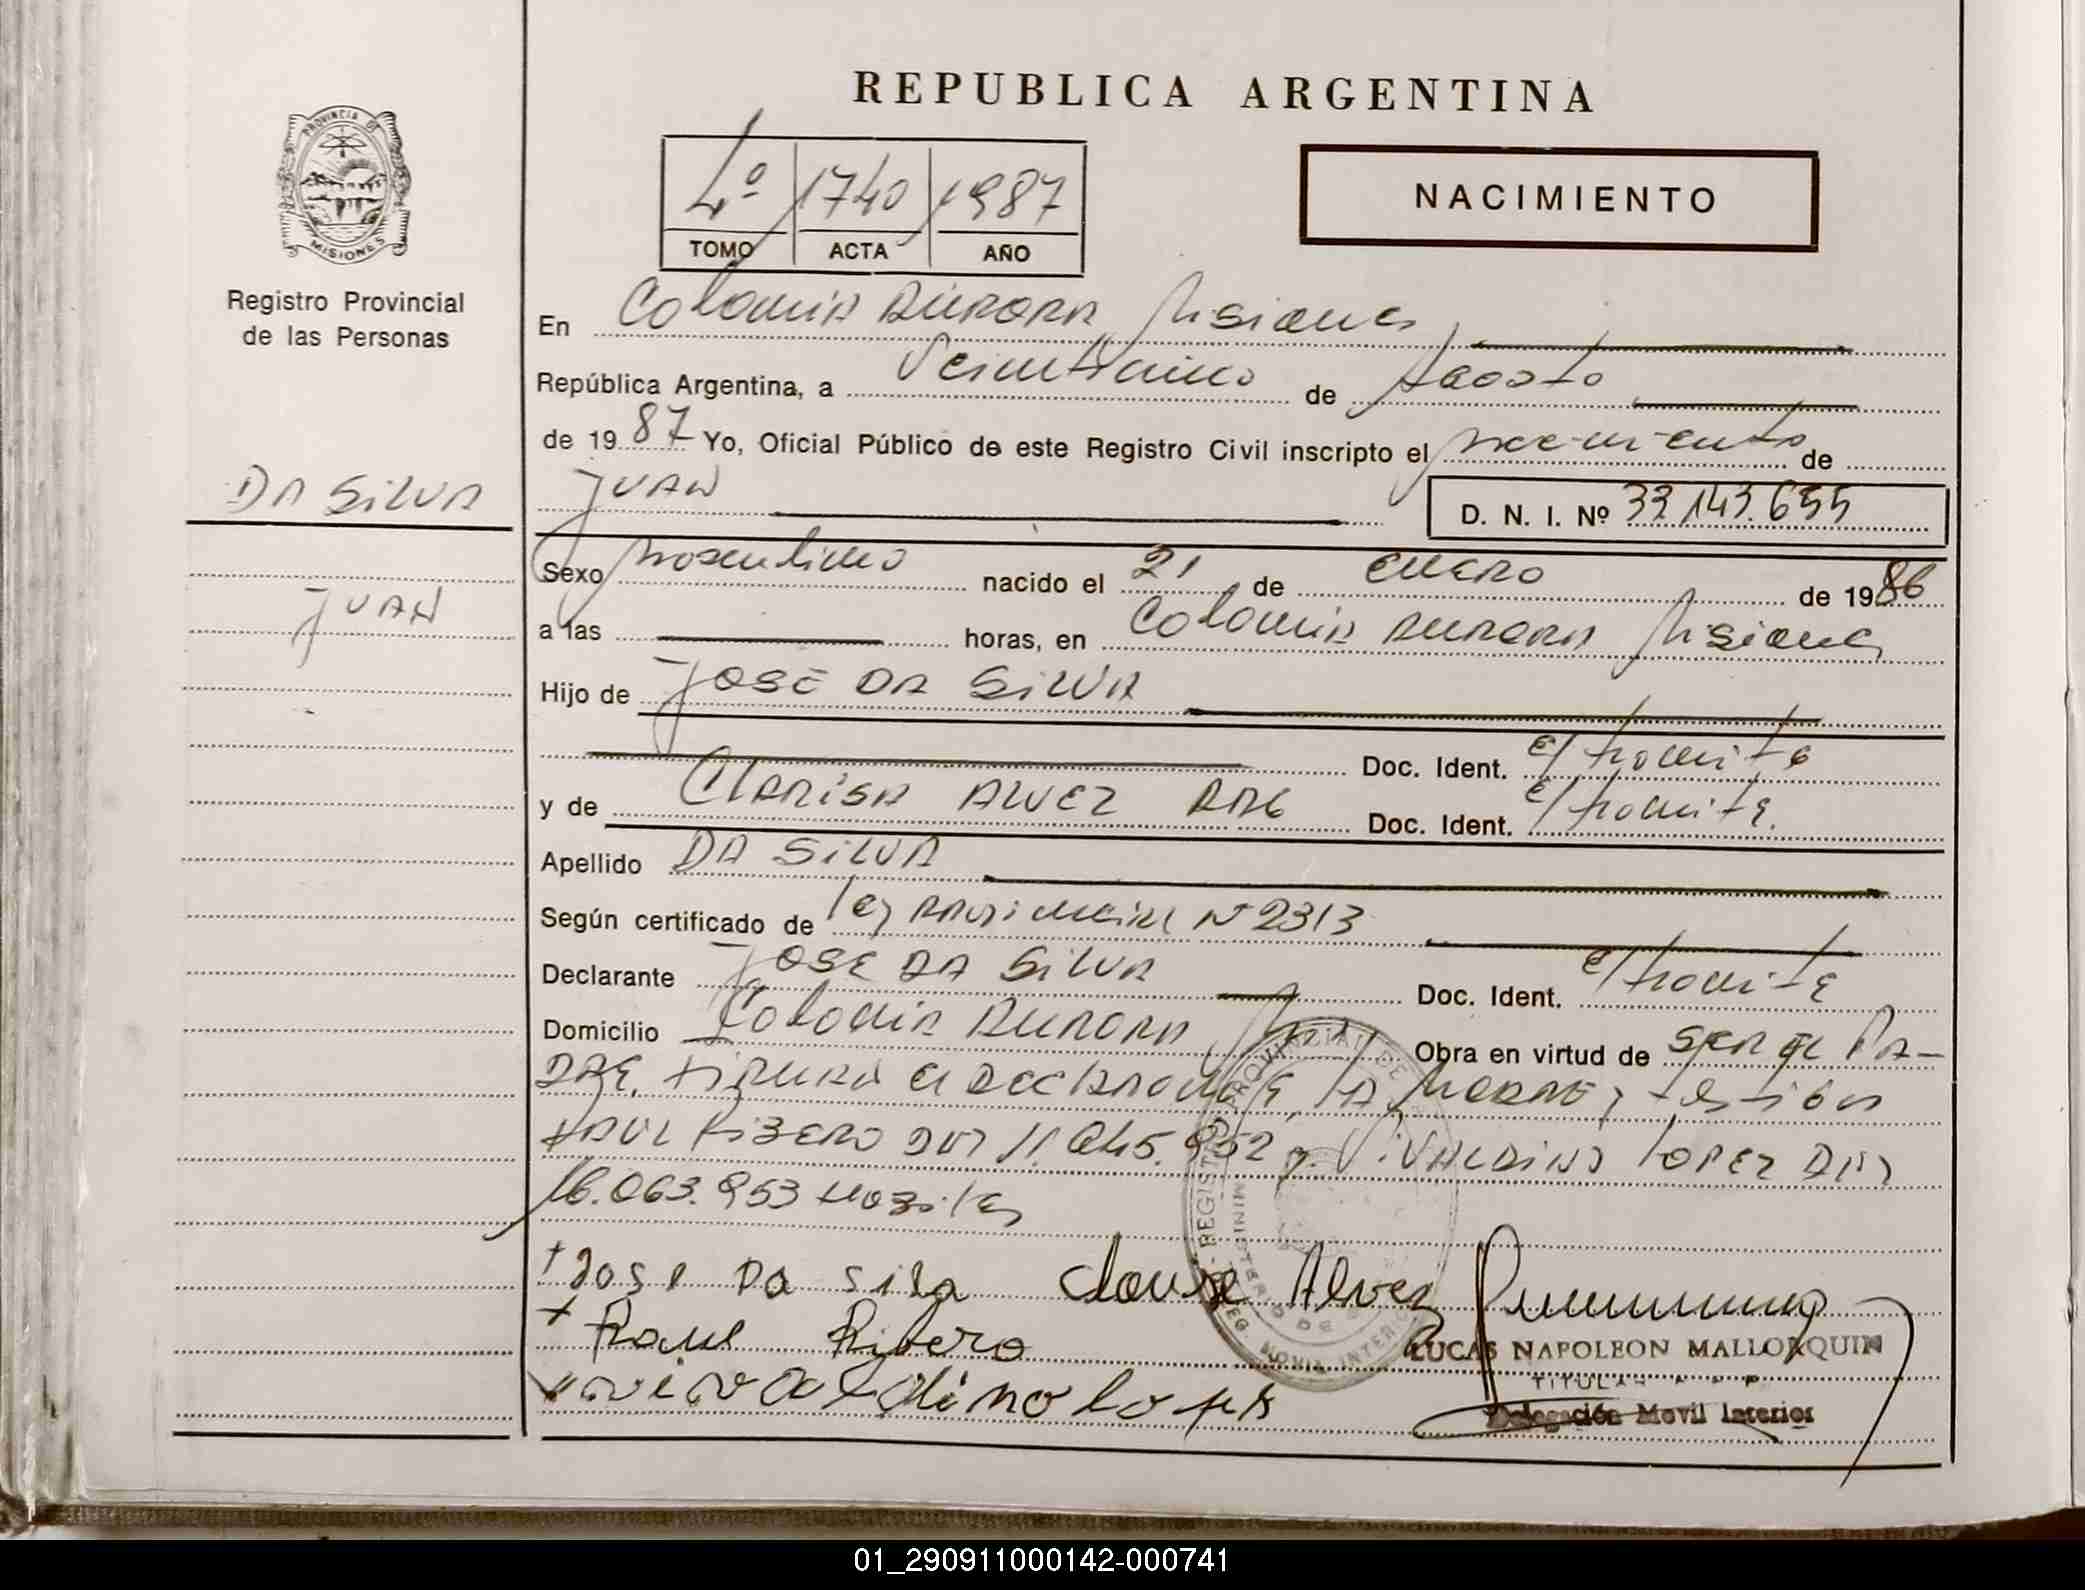 REPUBLICA ARGENTINA
PROVINCIA DE
MISIONES
Registro Provincial
de las Personas
4º 1740 1987
TOMO ACTA AÑO
NACIMIENTO
En Colonia Aurora, Misiones,
República Argentina, a Veinticinco de Agosto
de 1987 Yo, Oficial Público de este Registro Civil inscripto el nacimiento de
DA SILVA
JUAN
D. N. I. Nº 33.143.655
JUAN
Sexo masculino nacido el 21 de ENERO de 1986
a las horas, en Colonia Aurora Misiones
Hijo de JOSE DA SILVA
Doc. Ident. e/tramite
y de CLARISA ALVEZ Doc. Ident. e/tramite.
Apellido DA SILVA
Según certificado de ley provincial Nº 2313
Declarante JOSE DA SILVA Doc. Ident. e/tramite
Domicilio Colonia Aurora Obra en virtud de ser el PA-
DRE. Firman el declarante, la madre y testigos
RAUL RIBERO DNI 11.045.952 y VIVALDINO LOPEZ DNI
16.063.953 habiles
Jose Da Sila Clarise Alvez
Raul Ribero
vivaldino lopes
LUCAS NAPOLEON MALLORQUIN
TITULAR
Delegación Movil Interior
01_290911000142-000741